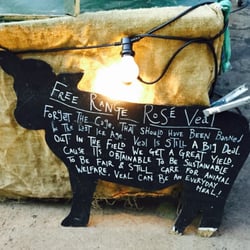 Free Range Rosé Veal
Forget the Cage, That Should Have Been Banned
In The Last Ice Age.
Out in the Field Veal Is Still A Big Deal
'Cause Its We Get A Great Yield,
Its Obtainable To Be Sustainable
To Be Fair & Still Care For Animal
Welfare, Veal Can Be An Everyday
Meal!